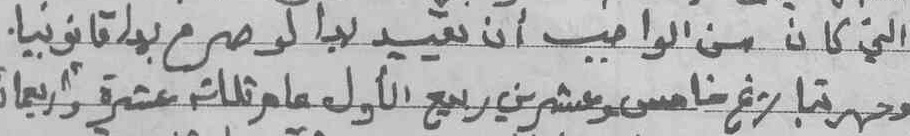 التي كان من الواجب أن تقيد لها لو صرح بها قانونيا.
وحرر بتاريخ خامس وعشرين ربيع الأول عام ثلاثة عشرة وأربعمائة